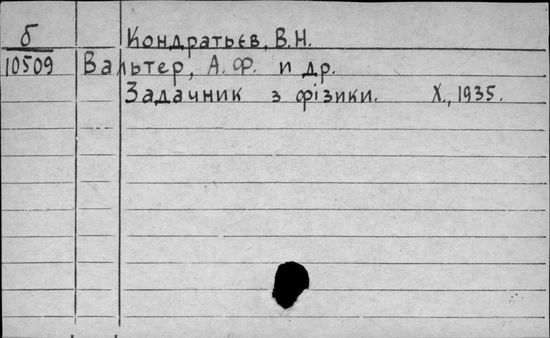 б Кондратьєв, В.Н.
10509 Вальтер, А. Ф. и др.
Задачник з фізики. Х., 1935.